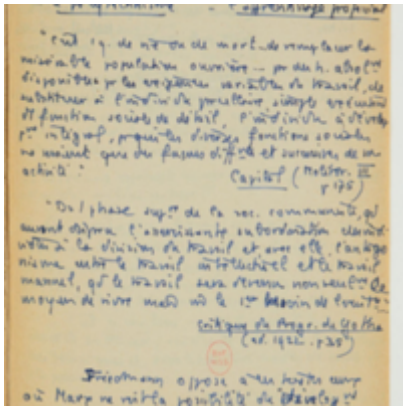 polytechnisme - l'apprentissage populai
"C'est 1 q. de vie ou de mort - de remplacer la
misérable population ouvrière - pr des h. absolt
disponibles pr les exigences variables du travail, de
substituer à l'individu parcellaire, simple exécutant
d'1 fonction sociale de détail, l'individu à dévelop
pt intégral, pr qui les diverses fonctions sociales
ne soient que des façons difftes et successives de son
activité"
Capital (Molitor. III
p 175)
"Ds 1 phase supre de la soc. communiste, qd
auront disparu l'asservissante subordination des indi
vidus à la division du travail et avec elle l'antago
nisme entre le travail intellectuel et le travail
manuel, qd le travail sera devenu non seult le
moyen de vivre mais le 1er besoin de l'exist
Critique du Progr. de Gotha
(ed. 1922. p 25)
Friedmann oppose à ces textes
où Marx la possibilité du dévelop